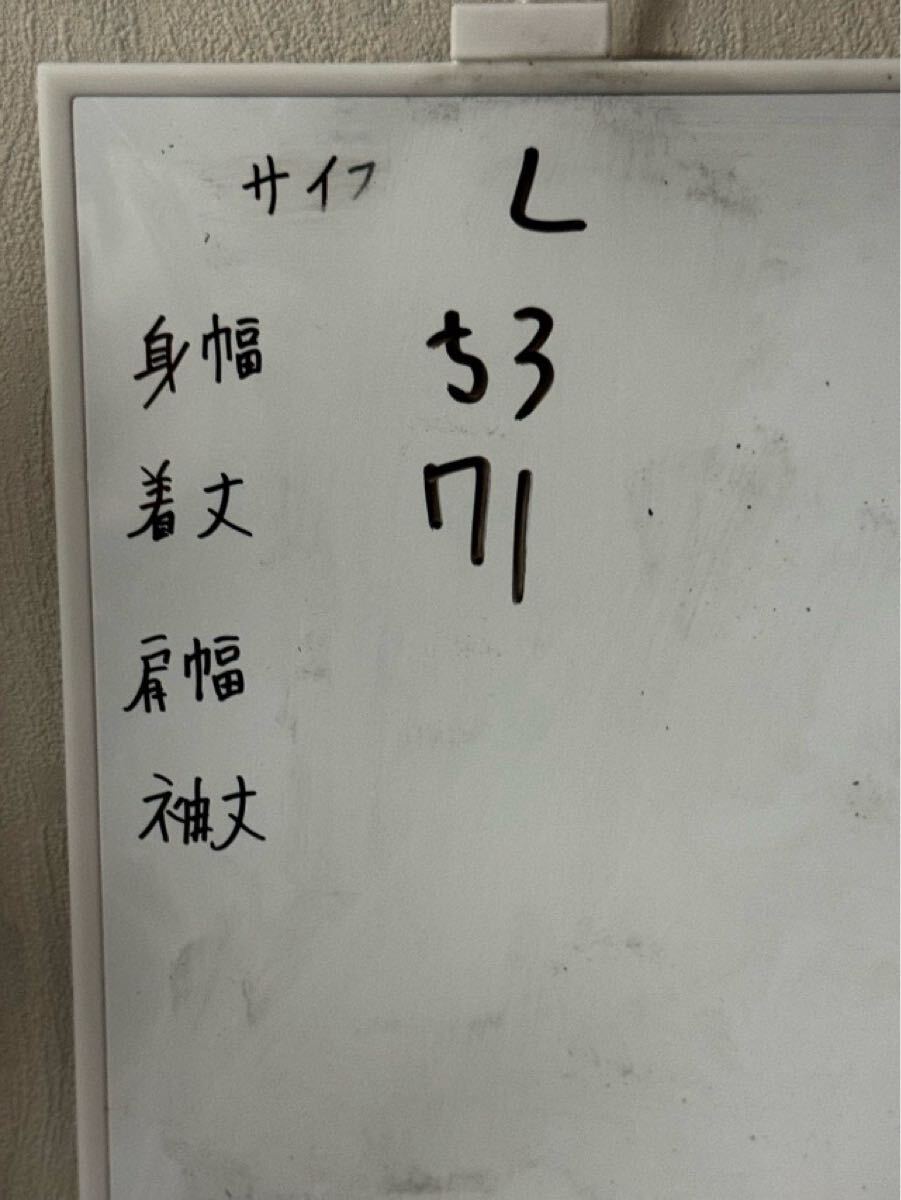 サイフ L
身幅 53
着丈 71
肩幅
袖丈